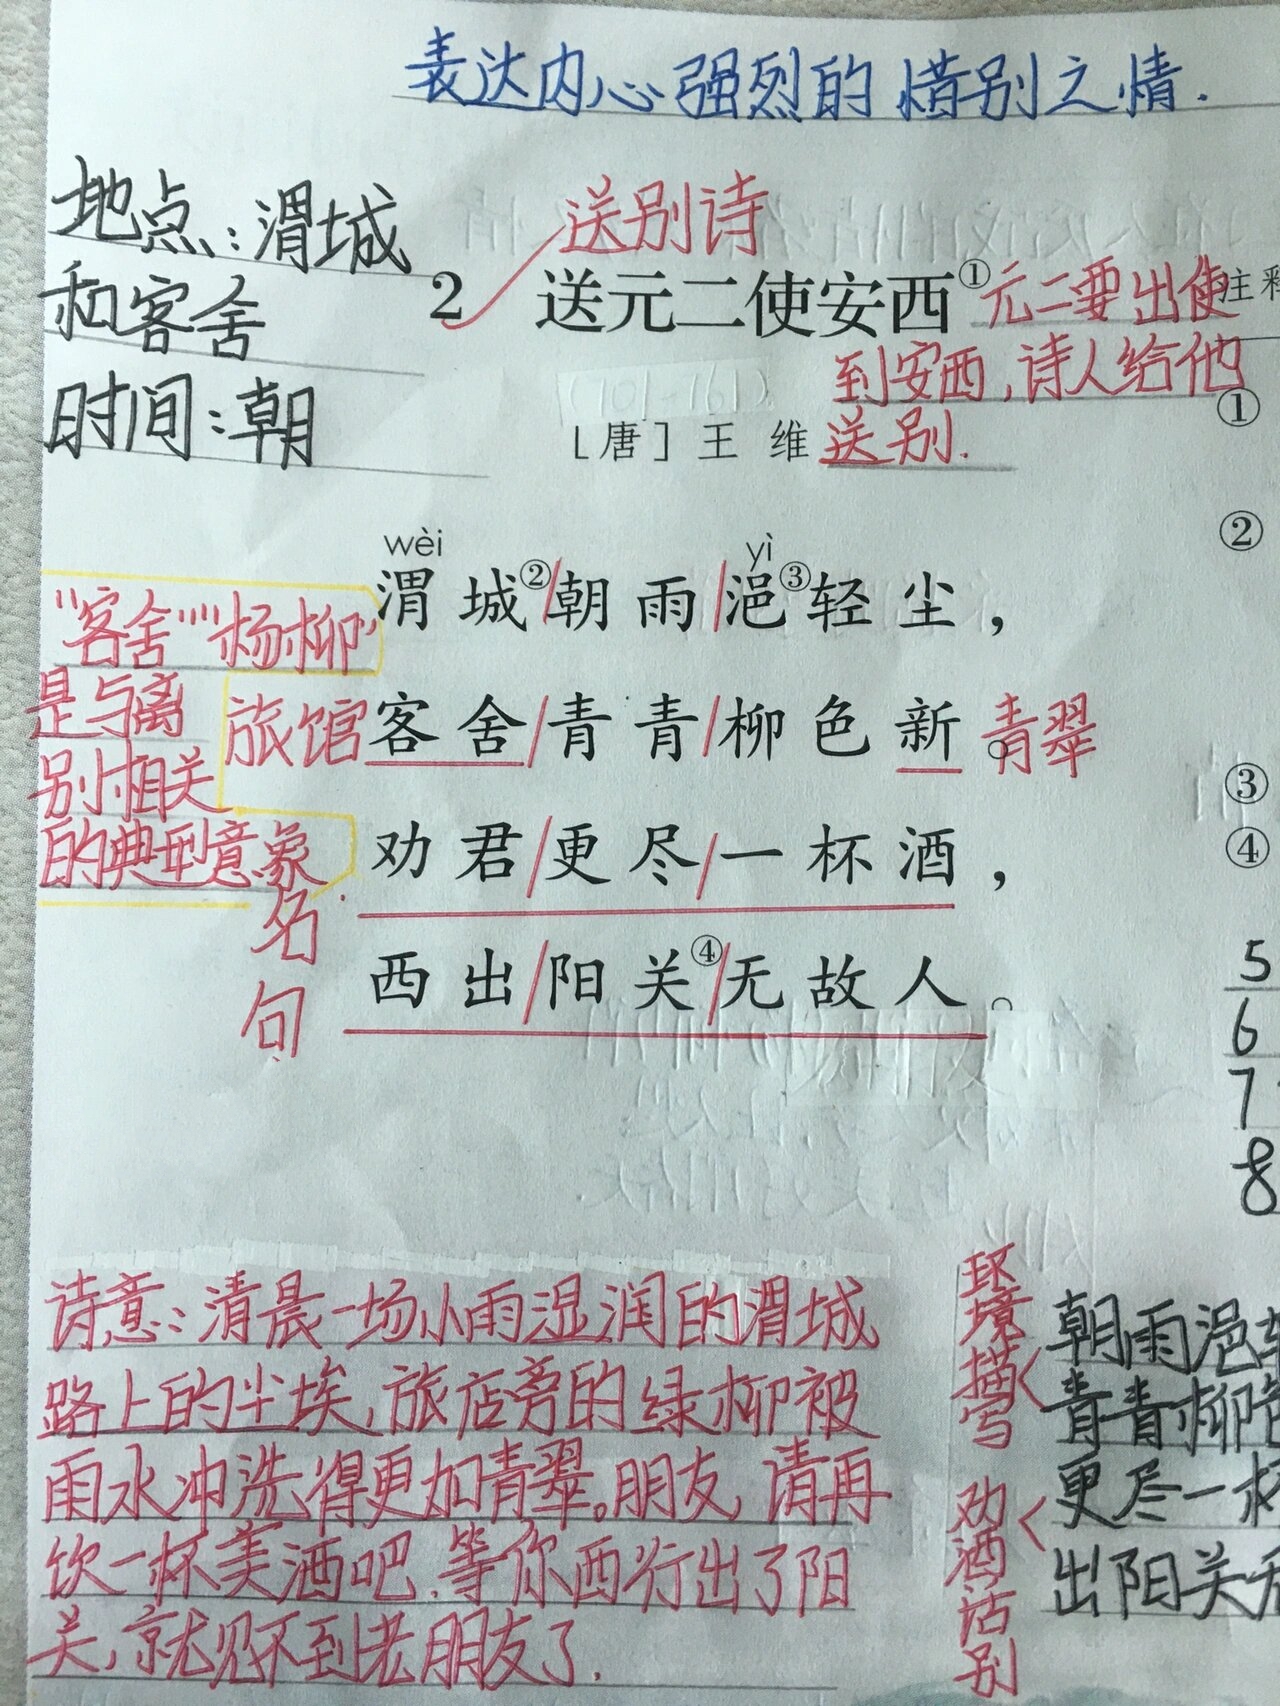 表达内心强烈的惜别之情.
地点:渭城
和客舍
时间:朝
送别诗
2 送元二使安西① 元二要出使
到安西,诗人给他
送别.
[唐] 王 维
注释
①
②
③
④
wèi yì
渭城②/朝雨/浥③轻尘,
旅馆 客舍/青青/柳色新。青翠
劝君/更尽/一杯酒,
西出/阳关④/无故人。
"客舍""杨柳"
是与离
别相关
的典型意象.
名句
5
6
7
8
诗意:清晨一场小雨湿润的渭城
路上的尘埃,旅店旁的绿柳被
雨水冲洗得更加青翠。朋友,请再
饮一杯美酒吧.等你西行出了阳
关,就见不到老朋友了.
环境描写<
朝雨浥轻
青青柳色
劝酒话别<
更尽一杯
出阳关无